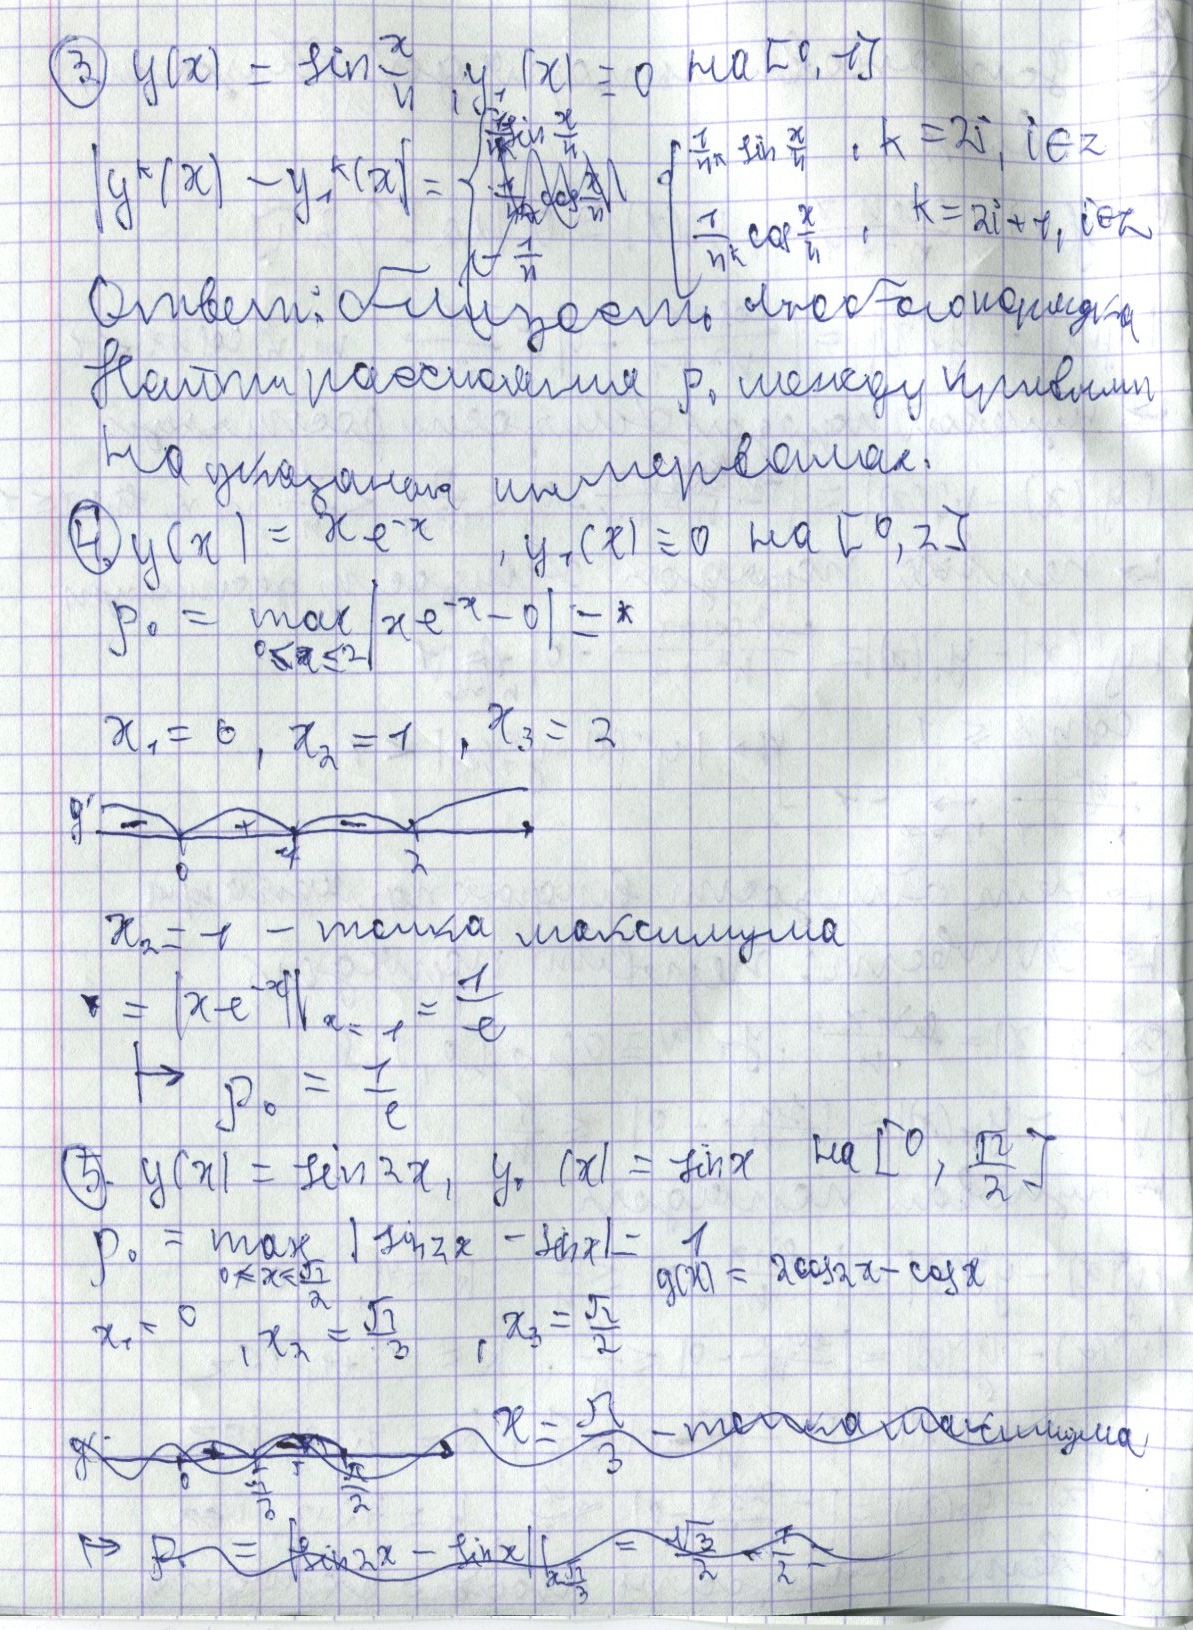 ③ y(x) = sin x/n , y₁(x) ≡ 0 на [0, 1]
|yᵏ(x) - y₁ᵏ(x)| = { 1/nᵏ sin x/n , k = 2i, i ∈ z
1/nᵏ cos x/n , k = 2i+1, i ∈ z
Ответ: близость любого порядка
Найти расстояния ρ₀ между кривыми
на указаных интервалах.
④ y(x) = xe⁻ˣ , y₁(x) ≡ 0 на [0, 2]
ρ₀ = max |xe⁻ˣ - 0| = *
0≤x≤2
x₁ = 0 , x₂ = 1 , x₃ = 2
g' - + -
0 1 2
x₂ = 1 - точка максимума
* = |xe⁻ˣ|| x=1 = 1/e
↦ ρ₀ = 1/e
⑤. y(x) = sin 2x, y₁(x) = sin x на [0, π/2]
ρ₀ = max |sin 2x - sin x| = 1
0≤x≤π/2
g(x) = 2cos 2x - cos x
x₁ = 0 , x₂ = π/3 , x₃ = π/2
g' 0 π/3 π/2 x = π/3 - точка максимума
↦ ρ₀ = |sin 2x - sin x|| x=π/3 = √3/2 - 1/2 =